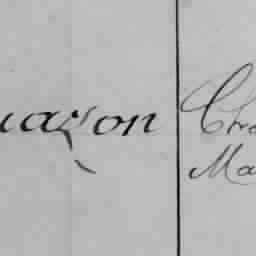 uazon
Cha
Ma